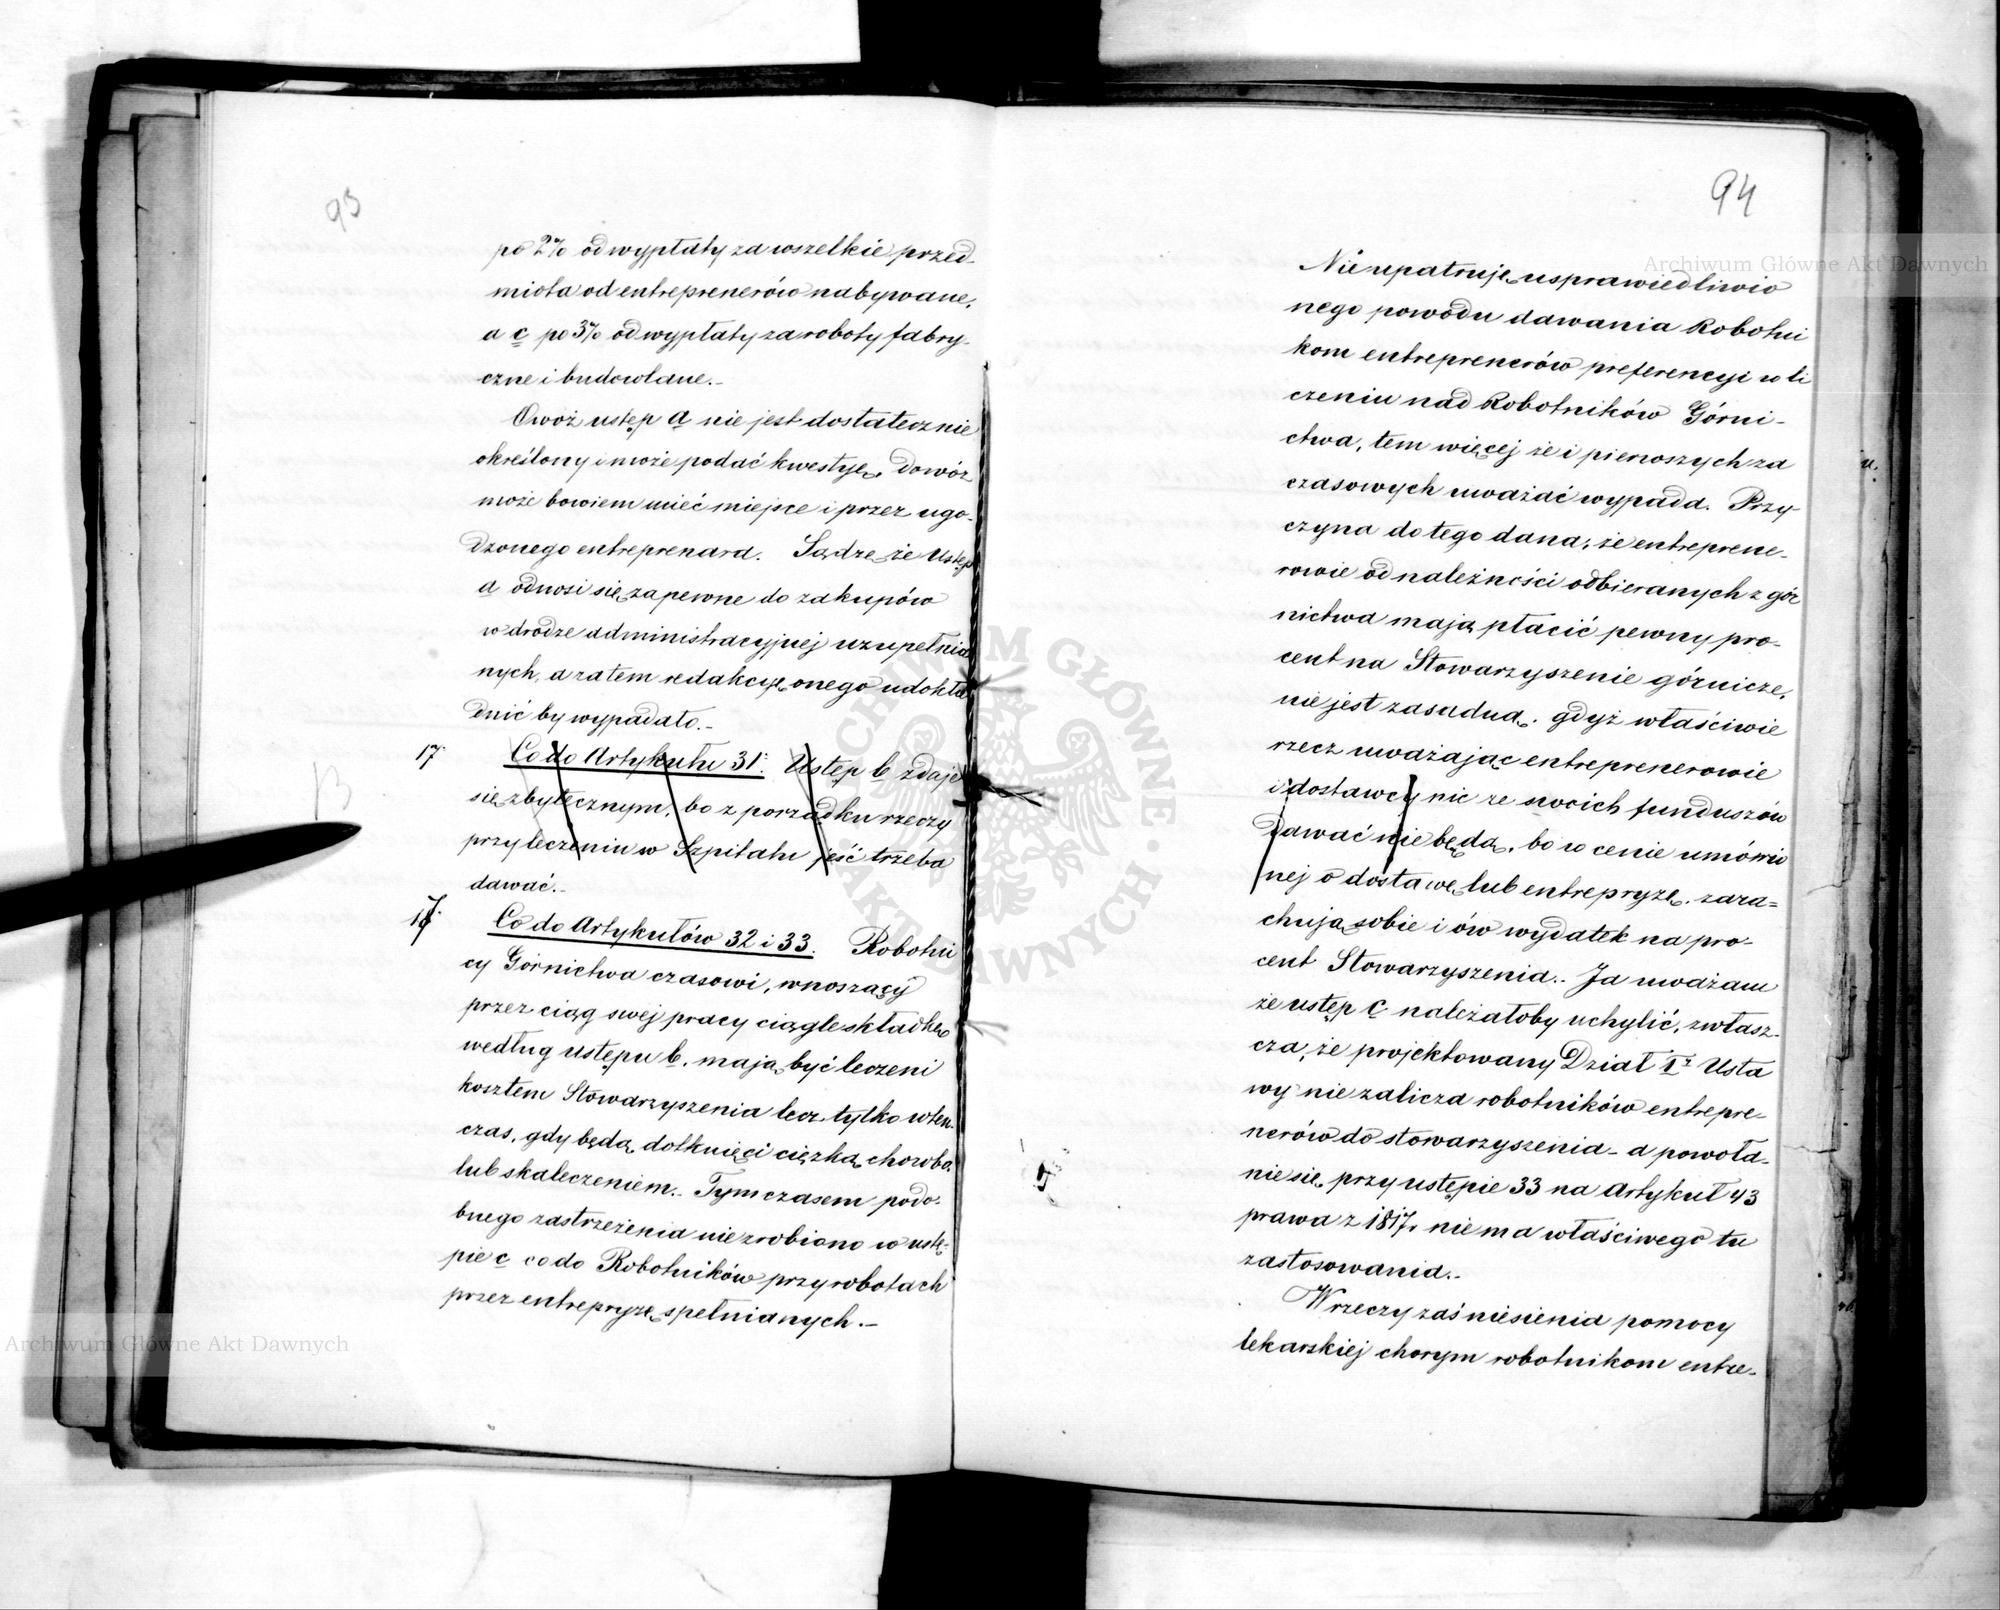 93
po 2% od wypłaty za wszelkie przed-
miota od entreprenerów nabywane,
a c po 3% od wypłaty za roboty fabry-
czne i budowlane.-
Owoż ustęp a nie jest dostatecznie
określony i może podać kwestyę. Dowóz
może bowiem mieć miejsce i przez ugo-
dzonego entreprenara. Sądzę, że Ustęp
a odnosi się zapewne do zakupów
w drodze administracyjnej uzupełnia
nych, a zatem redakcyę onego udokła
dnić by wypadało.-
17. Co do Artykułu 31. Ustęp b zdaje
się zbytecznym, bo z porządku rzeczy
przy leczeniu w Szpitalu jeść trzeba
dawać.-
17. Co do Artykułów 32 i 33. Robotni
cy Górnictwa czasowi, wnoszący
przez ciąg swej pracy ciągle składkę
według ustępu b. mają być leczeni
kosztem Stowarzyszenia lecz tylko wten-
czas, gdy będą dotknięci ciężką chorobą
lub skaleczeniem.- Tymczasem podo-
bnego zastrzeżenia nie zrobiono w ustę-
pie c co do Robotników przy robotach
przez entrepryzę spełnianych.-
94
Nie upatruję usprawiedliwio
nego powodu dawania Robotni
kom entreprenerów preferencyi w le
czeniu nad Robotników Górni-
ctwa, tem więcej że i pierwszych za
czasowych uważać wypada. Przy
czyna do tego dana, że entreprene-
rowie od należności odbieranych z gór
nictwa mają płacić pewny pro-
cent na Stowarzyszenie górnicze,
nie jest zasadną, gdyż właściwie
rzecz uważając entreprenerowie
i dostawcy nic ze swoich funduszów
dawać nie będą, bo w cenie umówio
nej o dostawę lub entrepryzę, zara=
chują sobie i ów wydatek na pro-
cent Stowarzyszenia.- Ja uważam
że ustęp c należałoby uchylić, zwłasz-
cza, że projektowany Dział I Usta
wy nie zalicza robotników entrepre-
nerów do stowarzyszenia - a powoła-
nie się, przy ustępie 33 na Artykuł 43
prawa z 1817, nie ma właściwego tu
zastosowania.-
W rzeczy zaś niesienia pomocy
lekarskiej chorym robotnikom entre-
Archiwum Główne Akt Dawnych
Archiwum Główne Akt Dawnych
ARCHIWUM GŁÓWNE AKT DAWNYCH